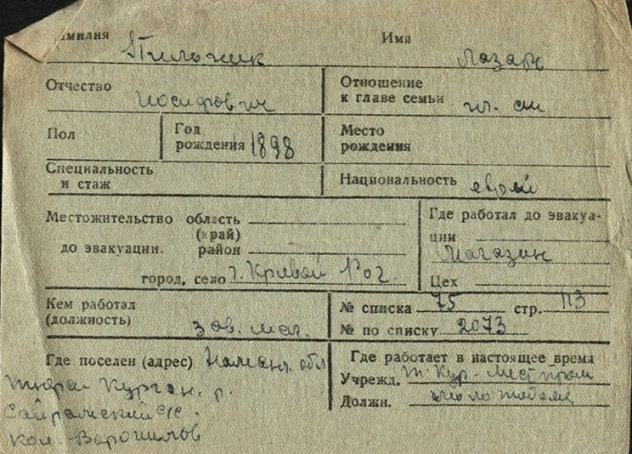 амилия Имя
Пиложик Лазарь
Отчество Иосифович
Отношение к главе семьи гл. сем
Пол
Год рождения 1898
Место рождения
Специальность и стаж
Национальность еврей
Местожительство область (край)
до эвакуации. район
город, село г. Кривой Рог
Где работал до эвакуации
магазин
Цех
Кем работал (должность) зав. маг.
№ списка 75 стр. 113
№ по списку 2073
Где поселен (адрес) Наманг. обл
Курган. р.
Сайрамский с/с.
кол. Ворошилов
Где работает в настоящее время
Учрежд. Т. Кур. Местпром
Должн.